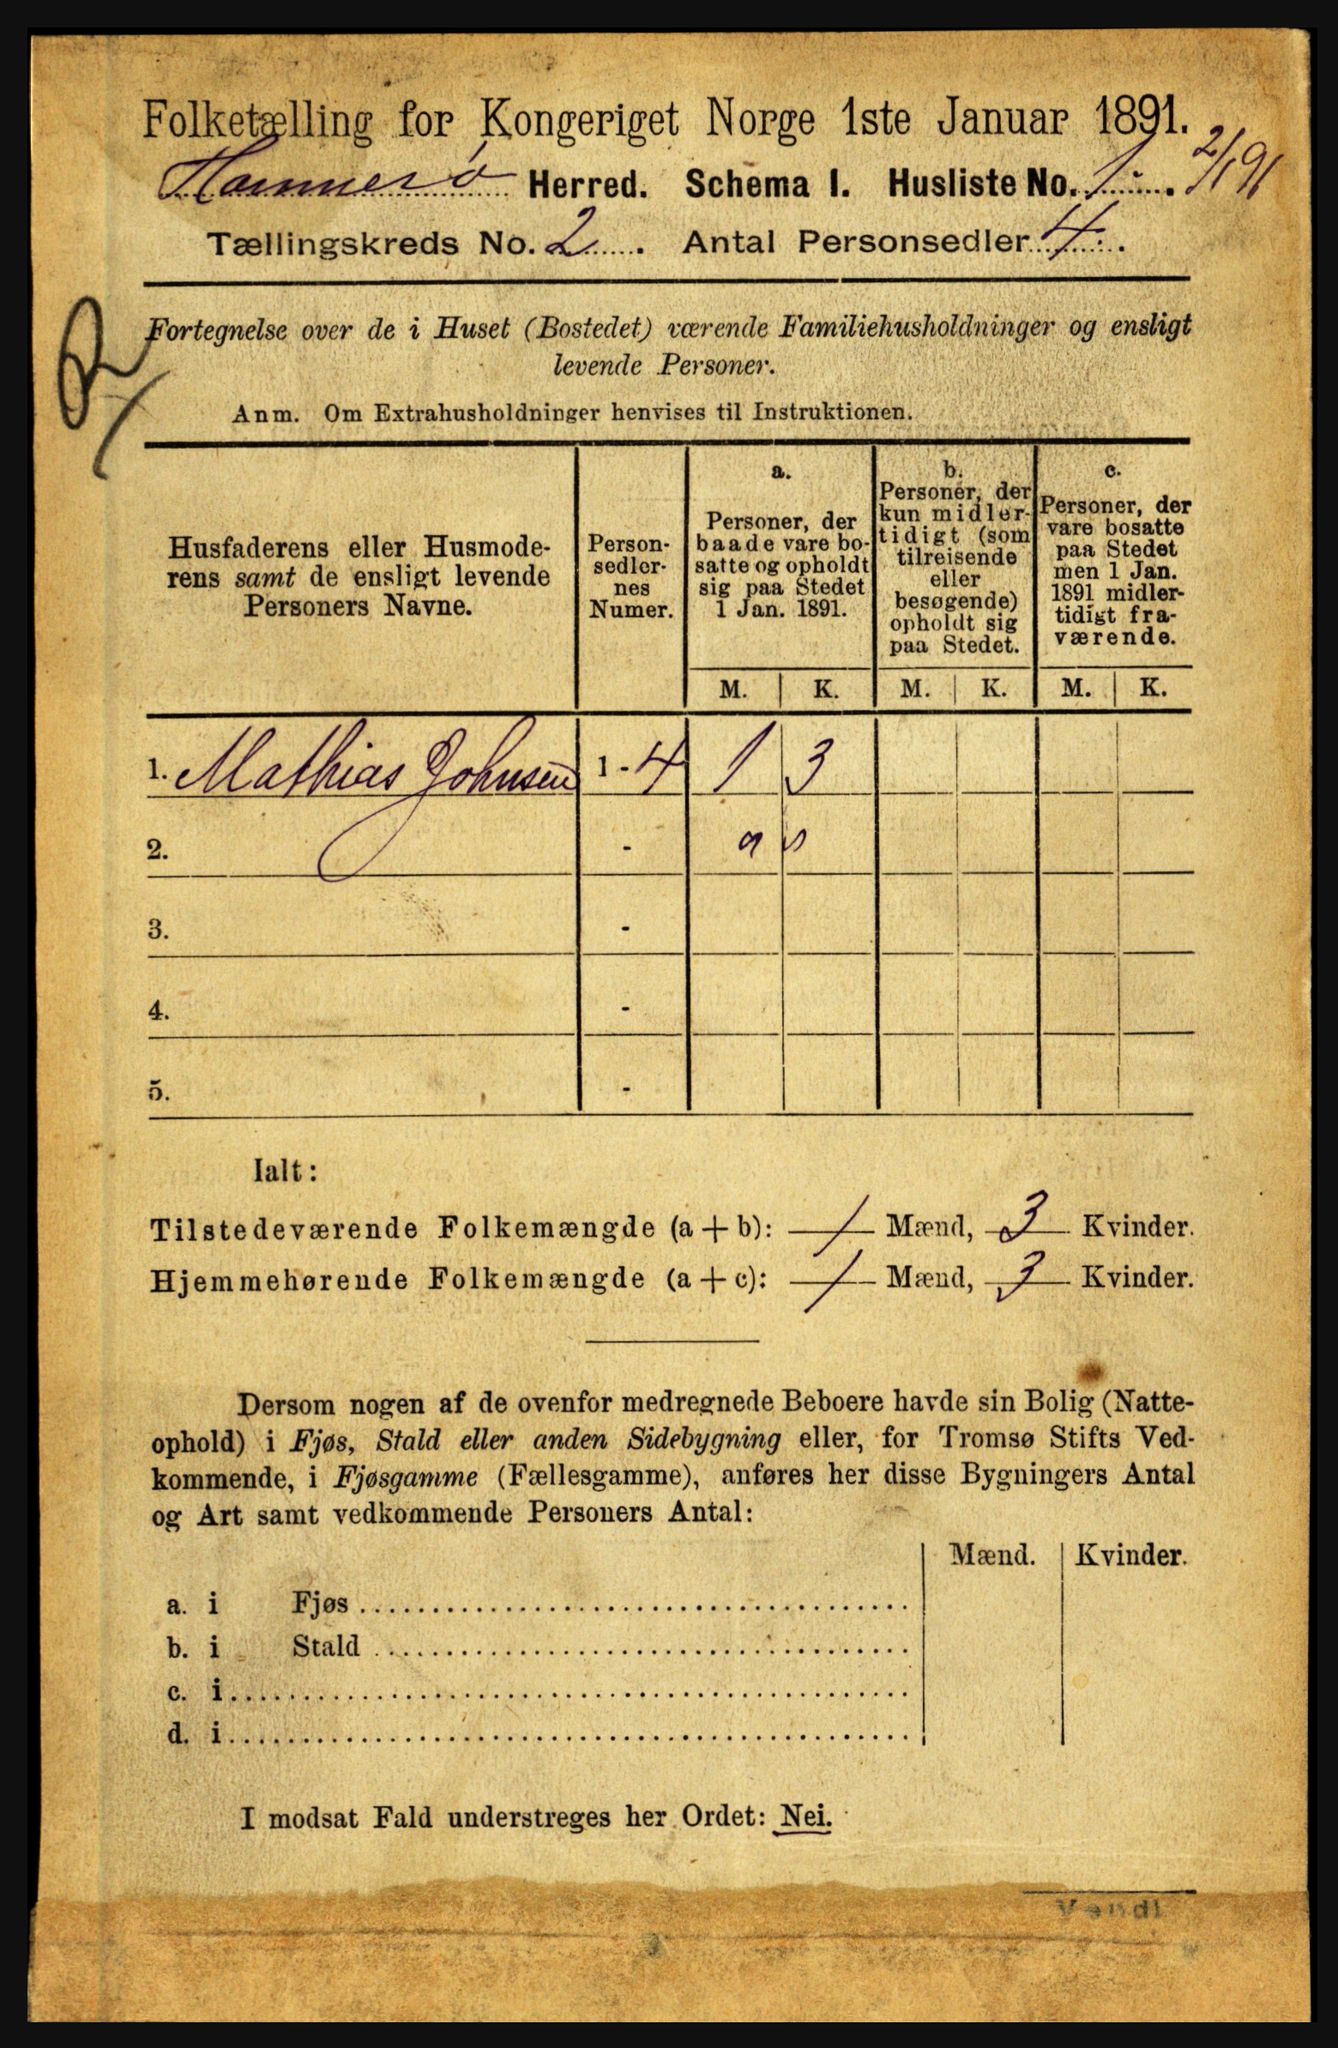 Folketælling for Kongeriget Norge 1ste Januar 1891.
Hammerø Herred. Schema I. Husliste No. 1. 2/1 91
Tællingskreds No. 2. Antal Personsedler 4.
Fortegnelse over de i Huset (Bostedet) værende Familiehusholdninger og ensligt
levende Personer.
Anm. Om Extrahusholdninger henvises til Instruktionen.
Husfaderens eller Husmode-
rens samt de ensligt levende
Personers Navne.
Person-
sedler-
nes
Numer.
a.
Personer, der
baade vare bo-
satte og opholdt
sig paa Stedet
1 Jan. 1891.
b.
Personer, der
kun midler-
tidigt (som
tilreisende
eller
besøgende)
opholdt sig
paa Stedet.
c.
Personer, der
vare bosatte
paa Stedet
men 1 Jan.
1891 midler-
tidigt fra-
værende.
M. K. M. K. M. K.
1. Mathias Johnsen 1 - 4 1 3
2. -
3. -
4. -
5. -
Ialt:
Tilstedeværende Folkemængde (a + b): 1 Mænd, 3 Kvinder.
Hjemmehørende Folkemængde (a + c): 1 Mænd, 3 Kvinder.
Dersom nogen af de ovenfor medregnede Beboere havde sin Bolig (Natte-
ophold) i Fjøs, Stald eller anden Sidebygning eller, for Tromsø Stifts Ved-
kommende, i Fjøsgamme (Fællesgamme), anføres her disse Bygningers Antal
og Art samt vedkommende Personers Antal:
Mænd. Kvinder.
a. i Fjøs
b. i Stald
c. i
d. i
I modsat Fald understreges her Ordet: Nei.
Vend!